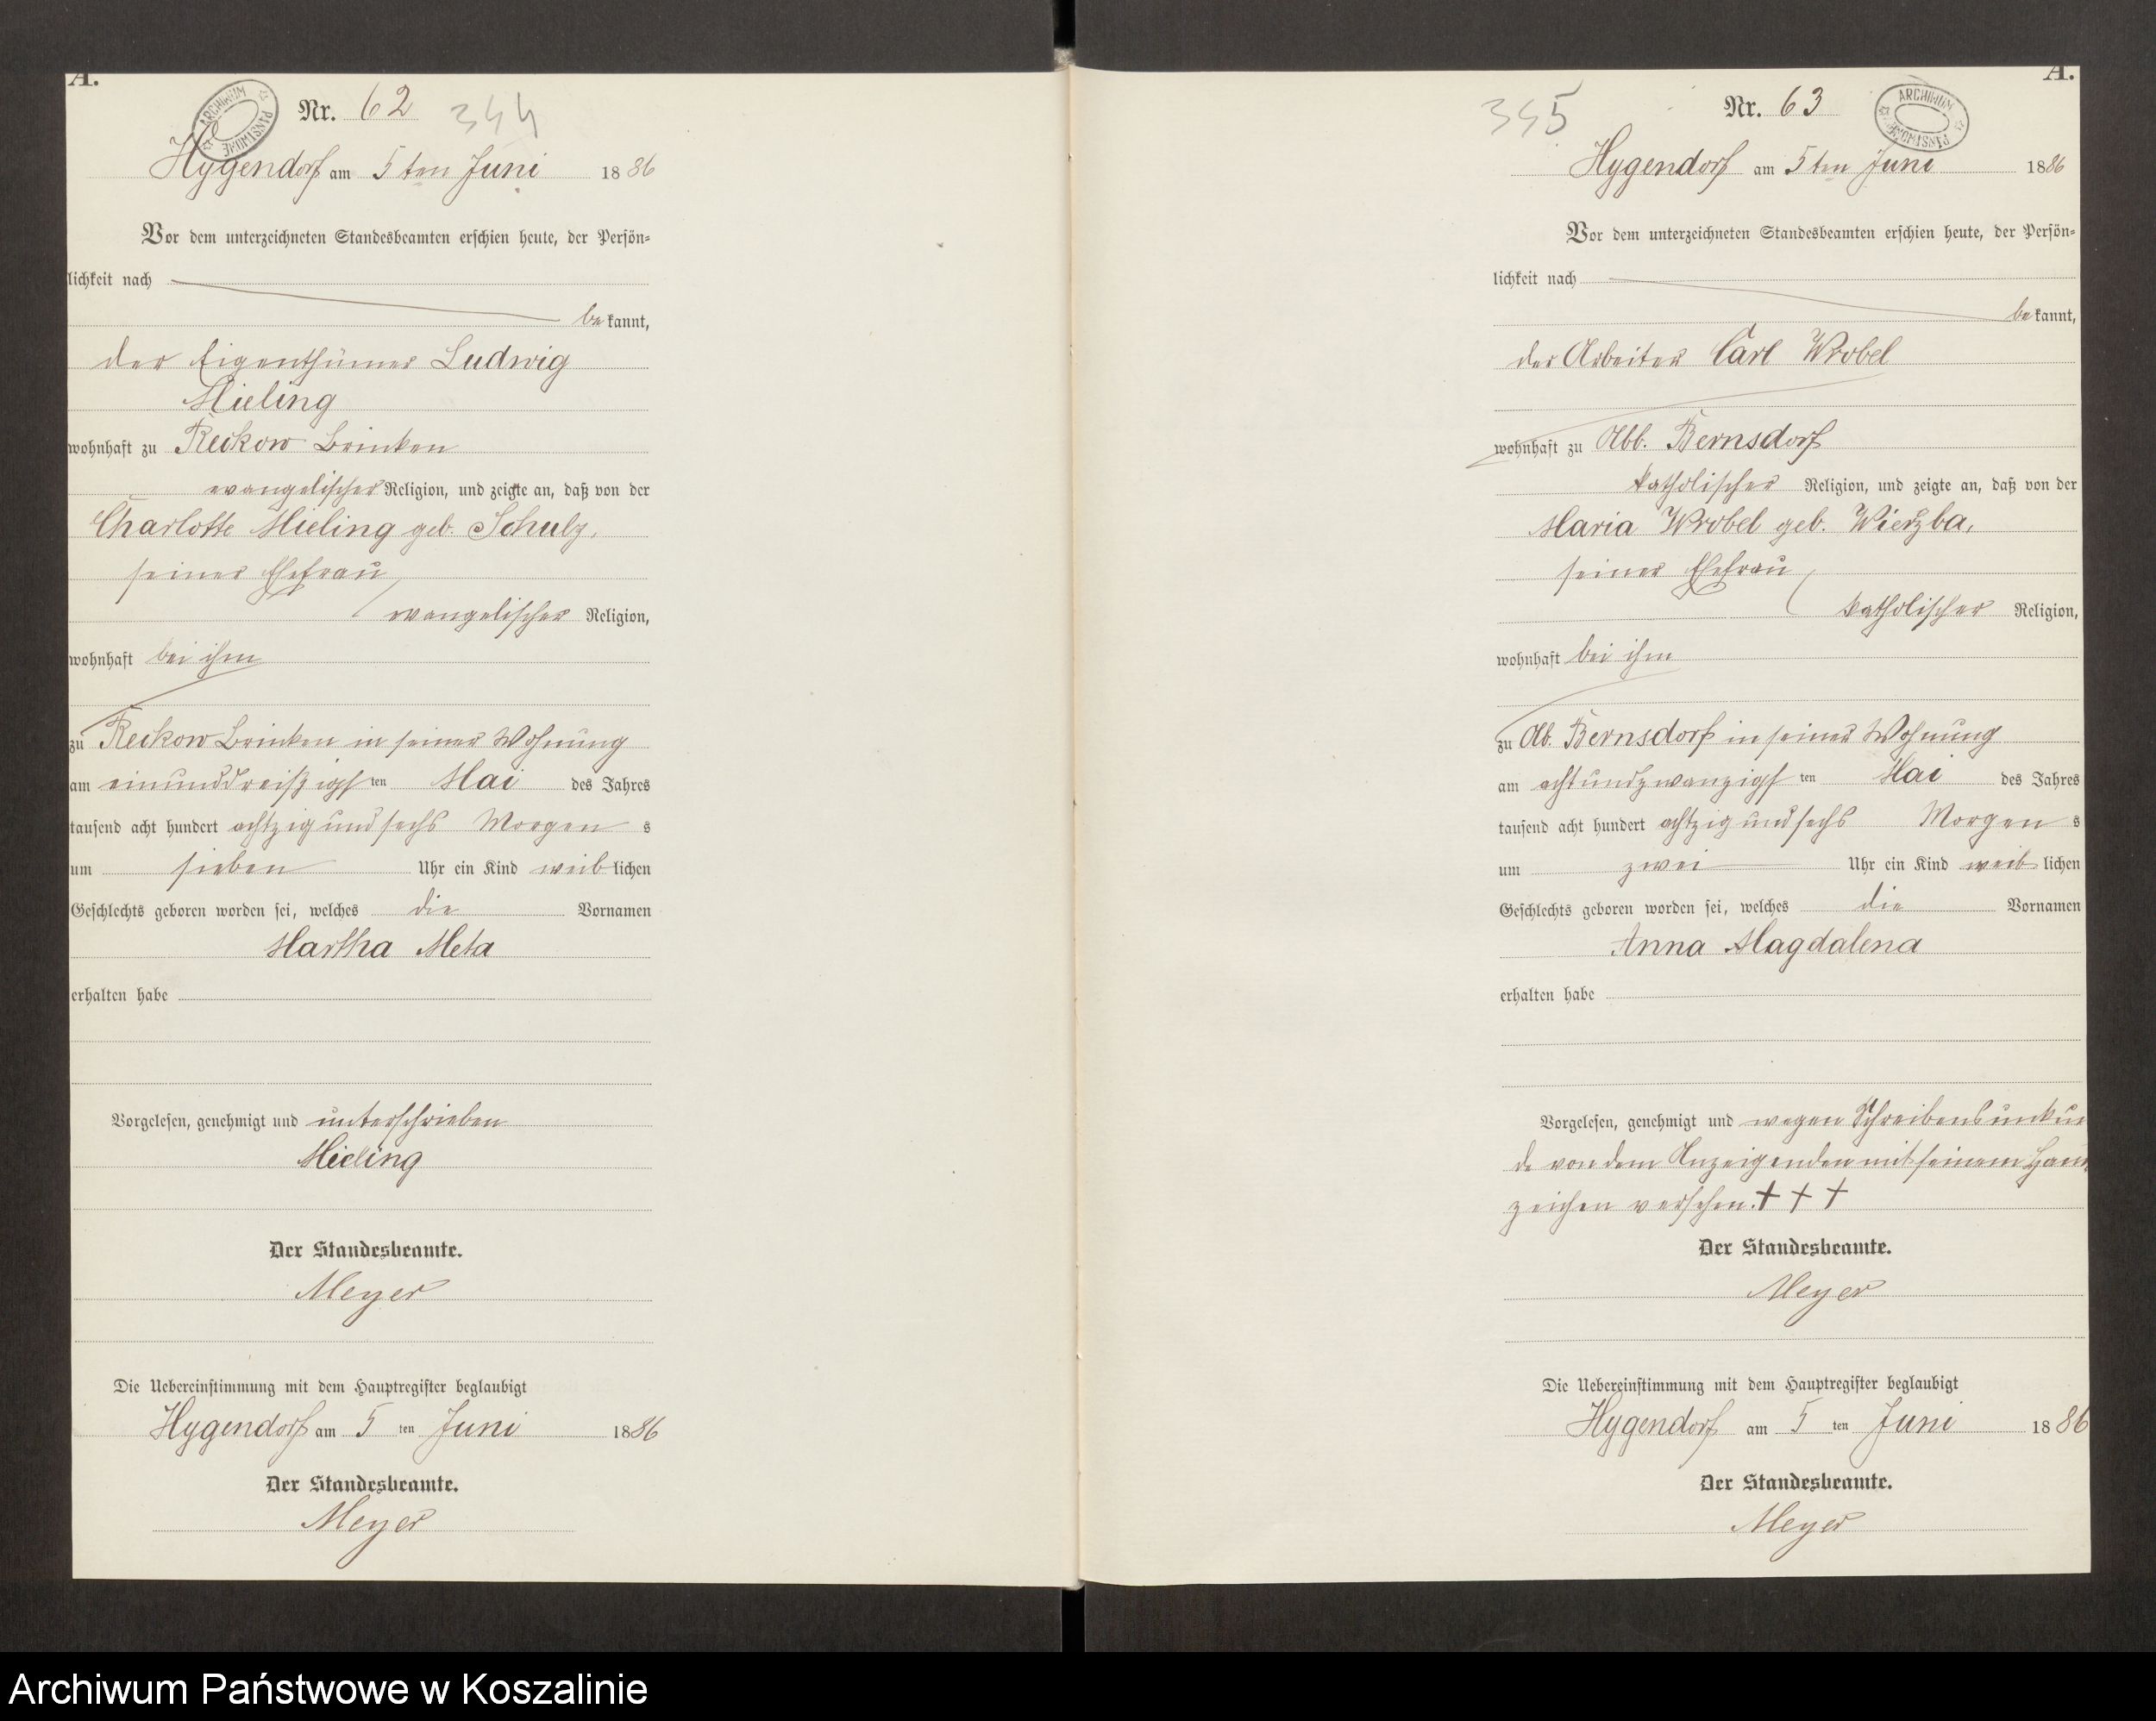 A.
ARCHIWUM PAŃSTWOWE
Nr. 62
344
Hygendorf am 5ten Juni 1886
Vor dem unterzeichneten Standesbeamten erschien heute, der Persön-
lichkeit nach
bekannt,
der Eigenthümer Ludwig
Mieling
wohnhaft zu Reckow Brinken
evangelischer Religion, und zeigte an, daß von der
Charlotte Mieling geb. Schulz,
seiner Ehefrau
evangelischer Religion,
wohnhaft bei ihm
zu Reckow Brinken in seiner Wohnung
am einunddreißigsten Mai des Jahres
tausend acht hundert achtzig und sechs Morgens
um sieben Uhr ein Kind weiblichen
Geschlechts geboren worden sei, welches die Vornamen
Martha Meta
erhalten habe
Vorgelesen, genehmigt und unterschrieben
Mieling
Der Standesbeamte.
Meyer
Die Uebereinstimmung mit dem Hauptregister beglaubigt
Hygendorf am 5ten Juni 1886
Der Standesbeamte.
Meyer
A.
345
Nr. 63
ARCHIWUM PAŃSTWOWE
Hygendorf am 5ten Juni 1886
Vor dem unterzeichneten Standesbeamten erschien heute, der Persön-
lichkeit nach
bekannt,
der Arbeiter Carl Wrobel
wohnhaft zu Abb. Bernsdorf
katholischer Religion, und zeigte an, daß von der
Maria Wrobel geb. Wierzba,
seiner Ehefrau
katholischer Religion,
wohnhaft bei ihm
zu Ab. Bernsdorf in seiner Wohnung
am achtundzwanzigsten Mai des Jahres
tausend acht hundert achtzig und sechs Morgens
um zwei Uhr ein Kind weiblichen
Geschlechts geboren worden sei, welches die Vornamen
Anna Magdalena
erhalten habe
Vorgelesen, genehmigt und wegen Schreibensunkun
de von dem Anzeigenden mit seinem Hand
zeichen versehen. + + +
Der Standesbeamte.
Meyer
Die Uebereinstimmung mit dem Hauptregister beglaubigt
Hygendorf am 5ten Juni 1886
Der Standesbeamte.
Meyer
Archiwum Państwowe w Koszalinie